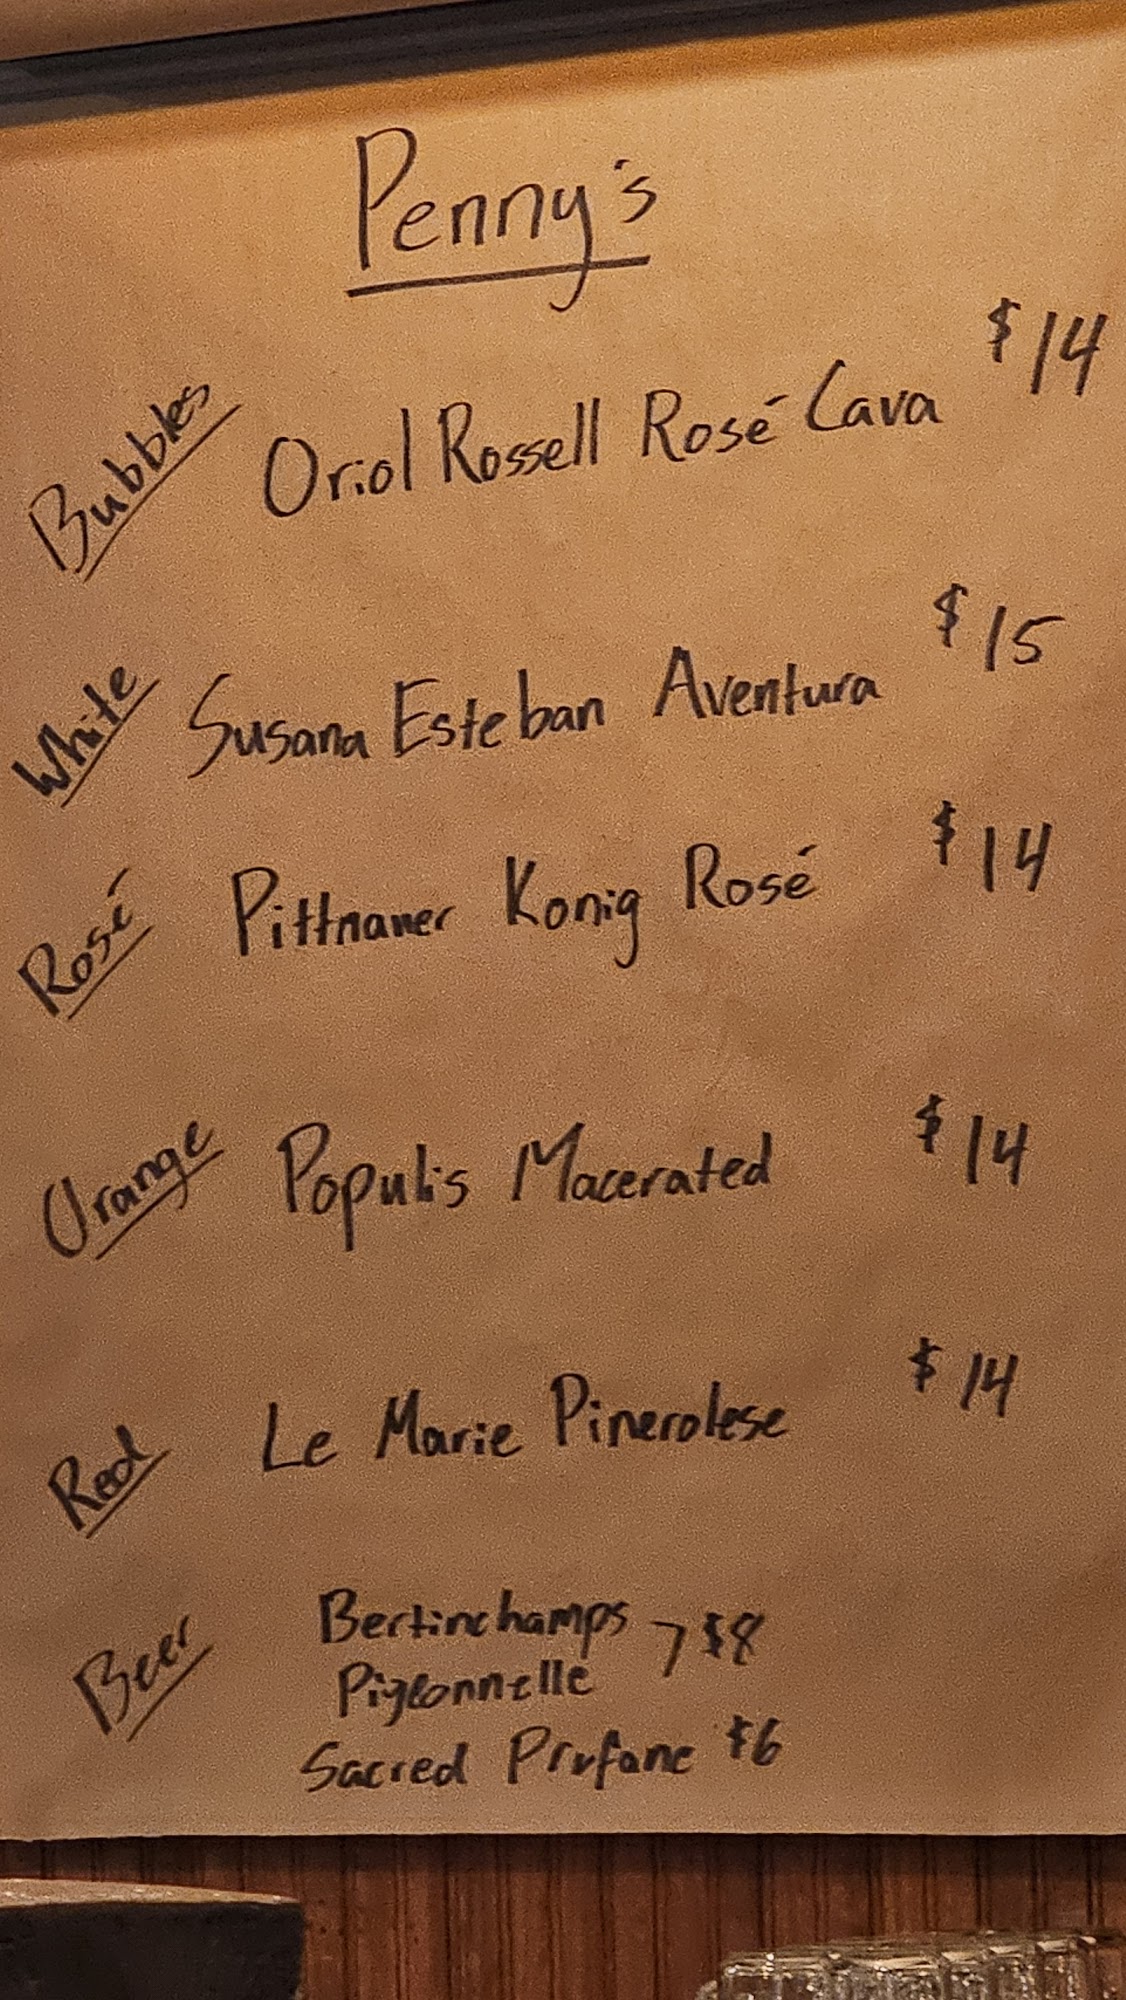 Penny's
Bubbles Oriol Rossell Rosé Cava $14
White Susana Esteban Aventura $15
Rosé Pittnauer Konig Rosé $14
Orange Populis Macerated $14
Red Le Marie Pinerolese $14
Beer Bertinchamps $8
Pigeonnelle
Sacred Profane $6